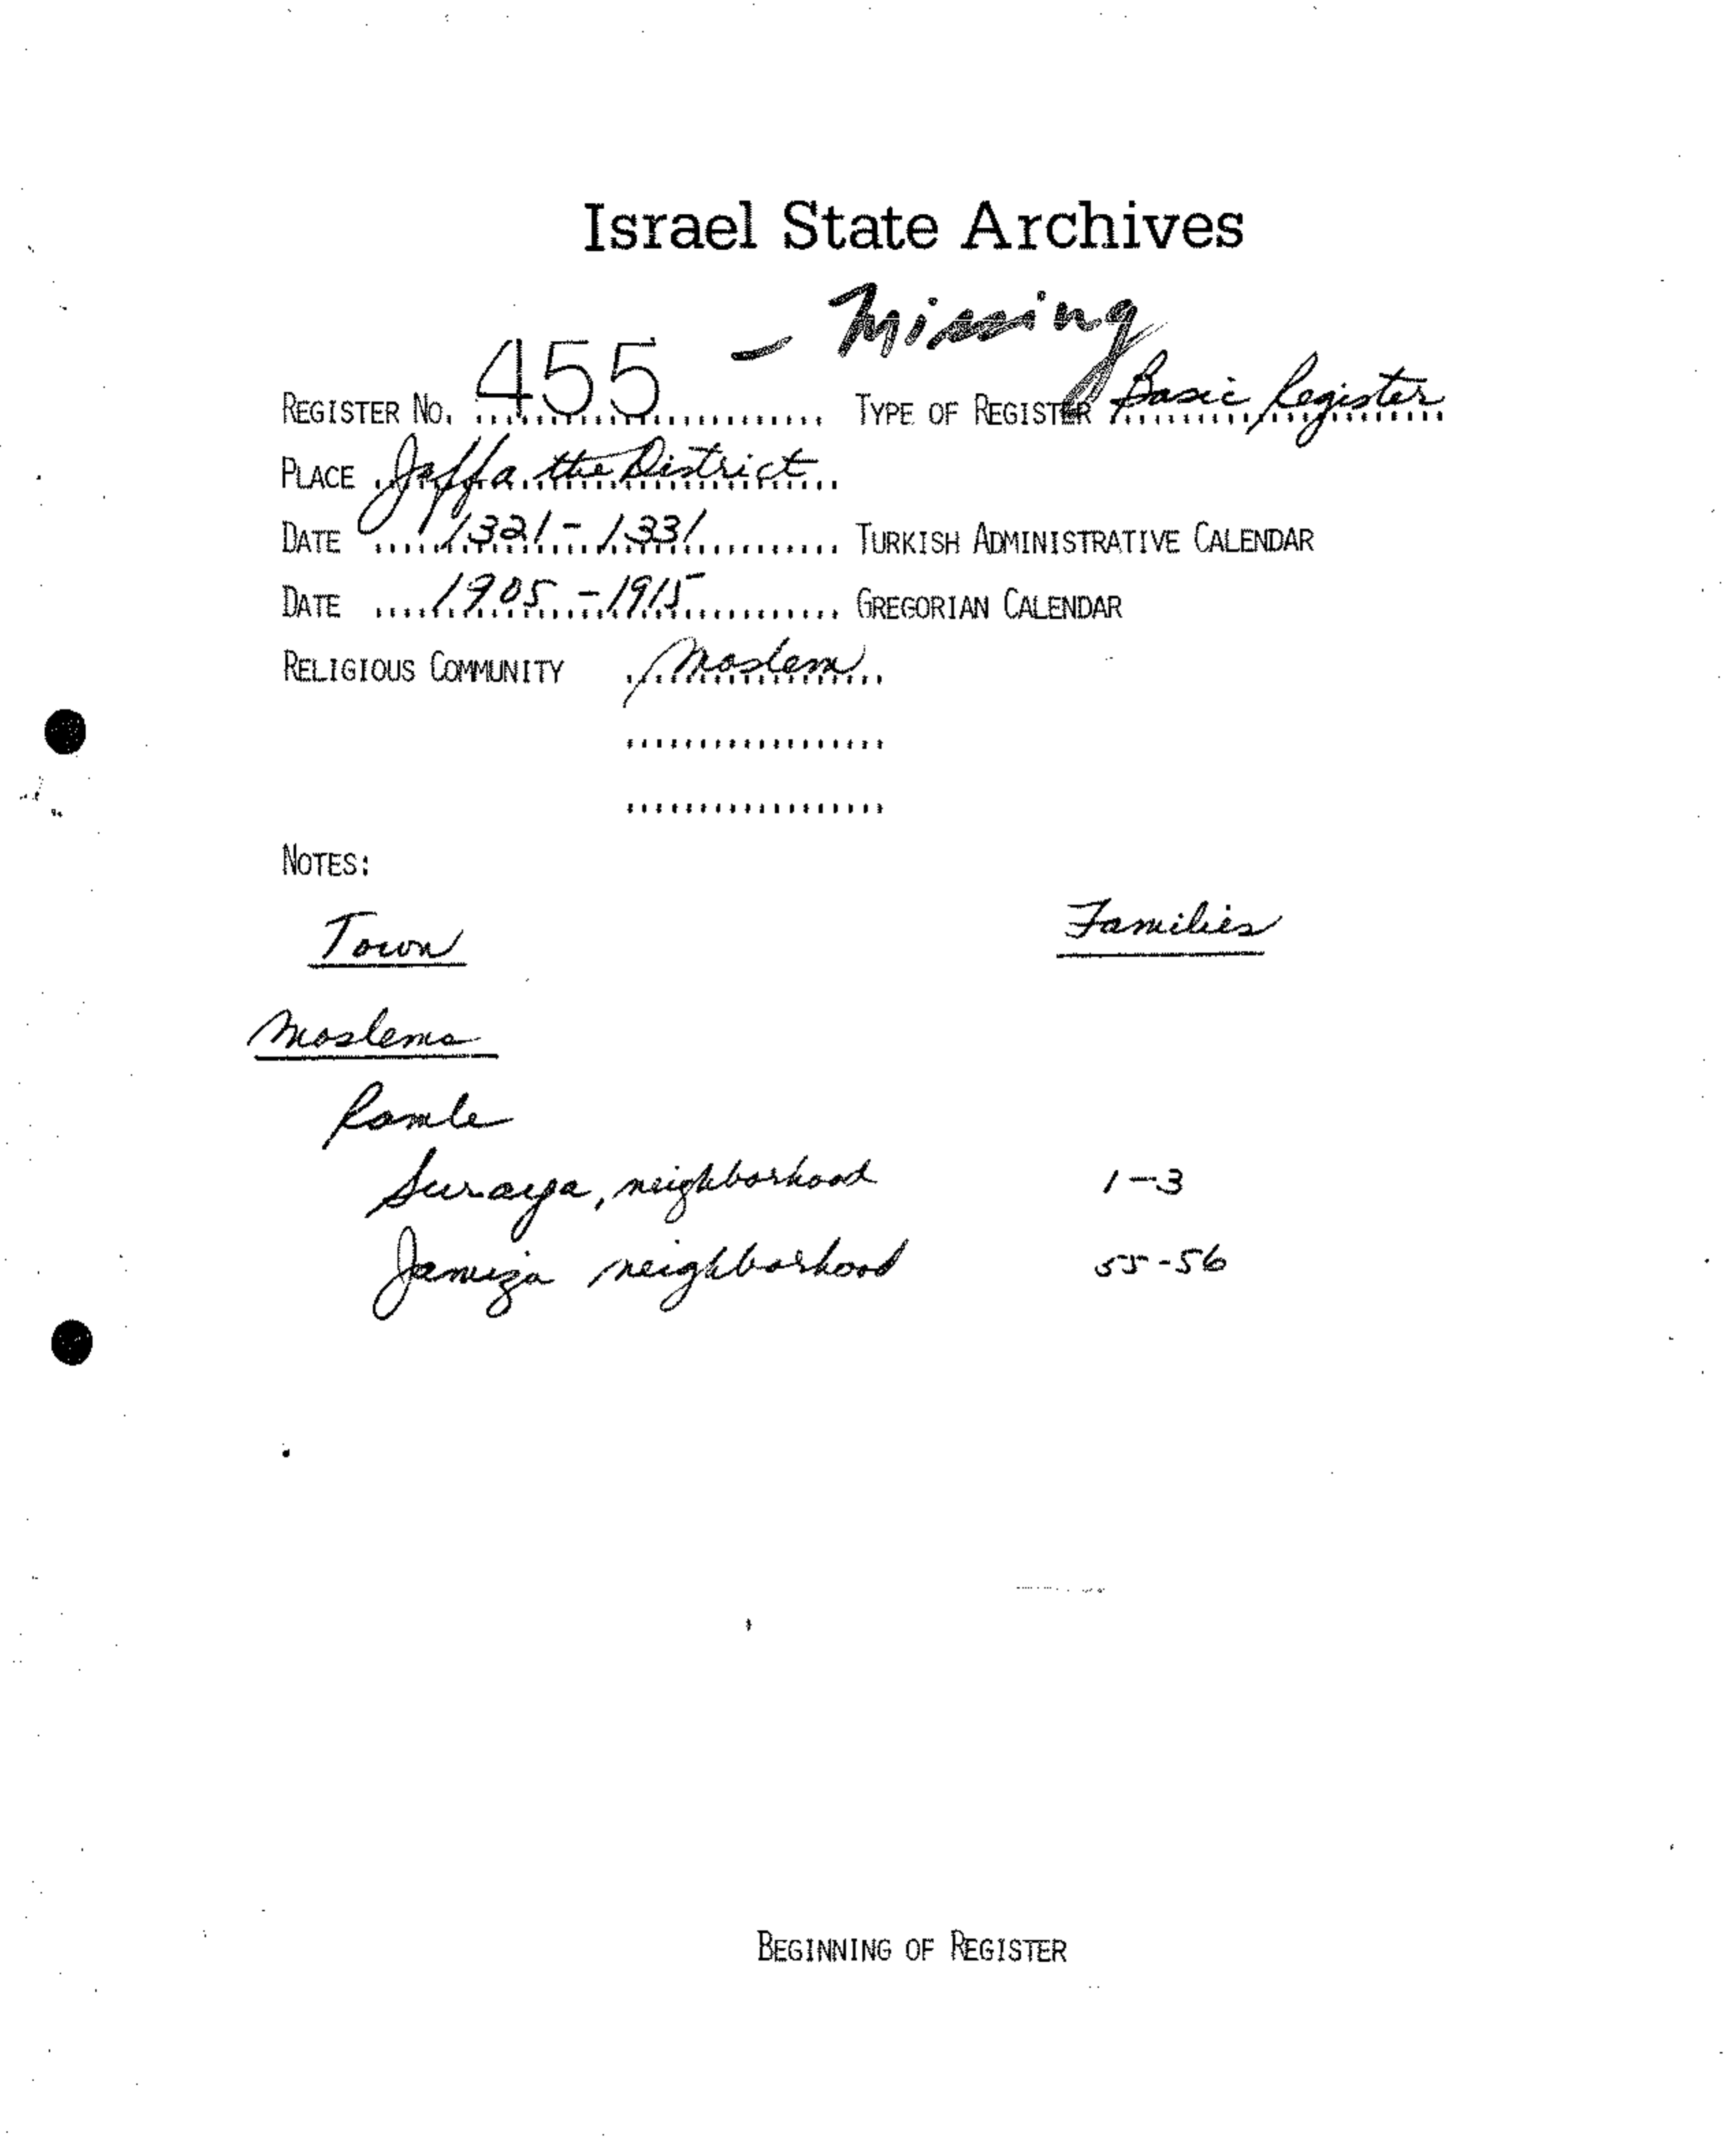 Israel State Archives
REGISTER NO. 455 - Missing TYPE OF REGISTER Basic Register
PLACE Jaffa the District
DATE 1321-1331 TURKISH ADMINISTRATIVE CALENDAR
DATE 1905-1915 GREGORIAN CALENDAR
RELIGIOUS COMMUNITY Moslem
NOTES:
Town Families
Moslems
Ramle
Suraya, neighborhood 1-3
neighborhood 55-56
BEGINNING OF REGISTER